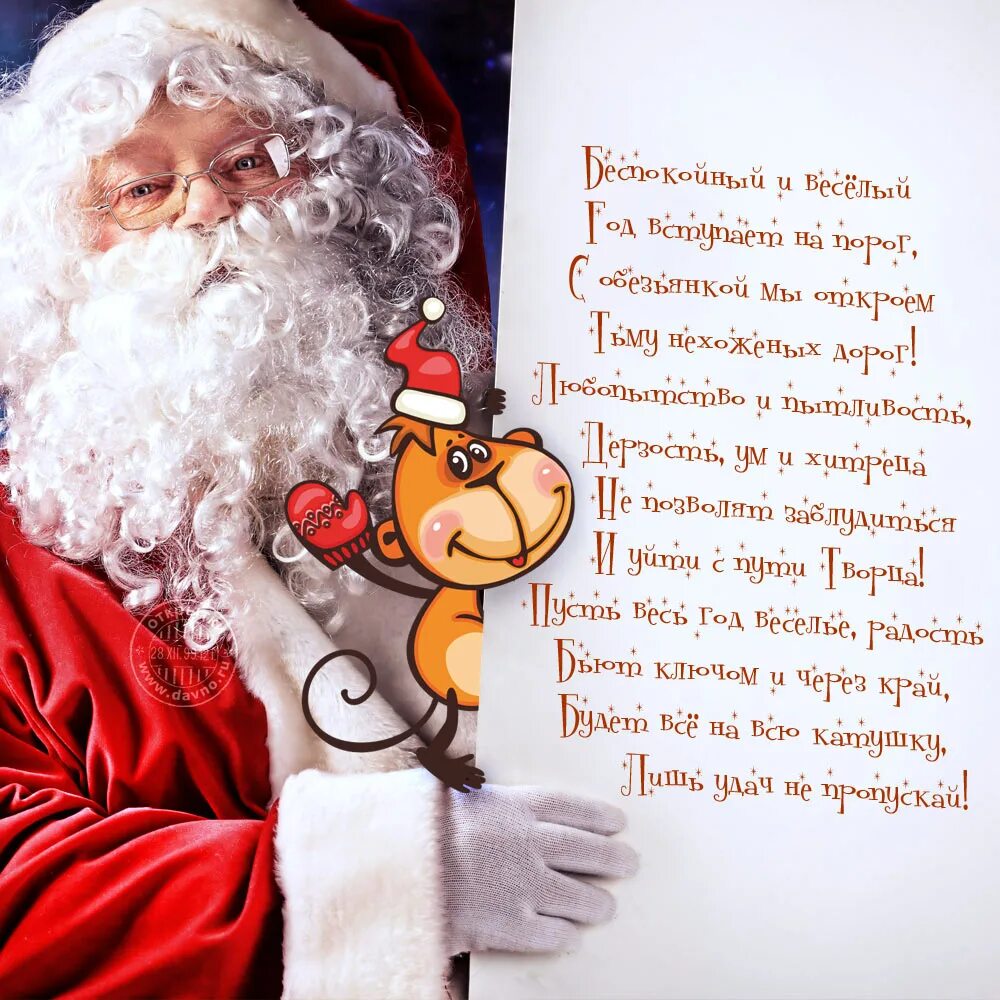 Беспокойный и весёлый
Год вступает на порог,
С обезьянкой мы откроем
Тьму нехоженых дорог!
Любопытство и пытливость,
Дерзость, ум и хитреца
Не позволят заблудиться
И уйти с пути Творца!
Пусть весь год веселье, радость
Бьют ключом и через край,
Будет всё на всю катушку,
Лишь удач не пропускай!
www.davno.ru